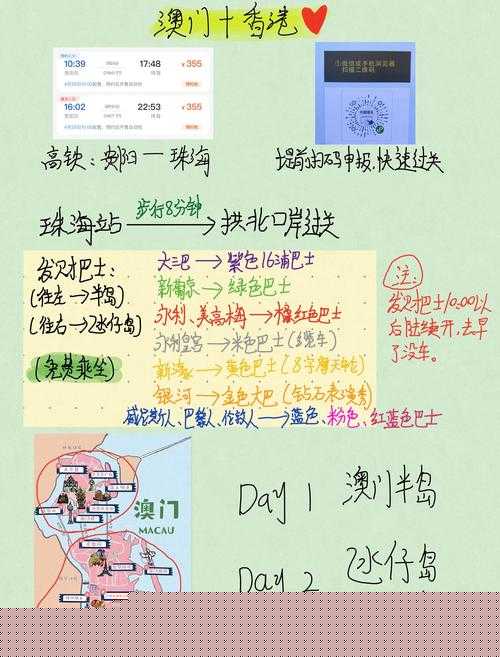 澳门+香港
10:39 17:48 ¥355
16:02 22:53 ¥355
①微信或手机浏览器
扫描二维码
高铁：安阳—珠海
提前扫码申报，快速过关
珠海站 步行8分钟 → 拱北口岸过关
发财巴士：
(往左→半岛)
(往右→氹仔岛)
(免费乘坐)
大三巴→紫色16浦巴士
新葡京→绿色巴士
永利、美高梅→橡红色巴士
永利皇宫→米色巴士(缆车)
新濠影汇→黄色巴士(8字摩天轮)
银河→金色大巴(钻石表演秀)
威尼斯人、巴黎人、伦敦人→蓝色、粉色、红蓝色巴士
注:
发财巴士10:00以
后陆续开，去早
了没车。
澳门
MACAU
Day 1 澳门半岛
Day 2 氹仔岛